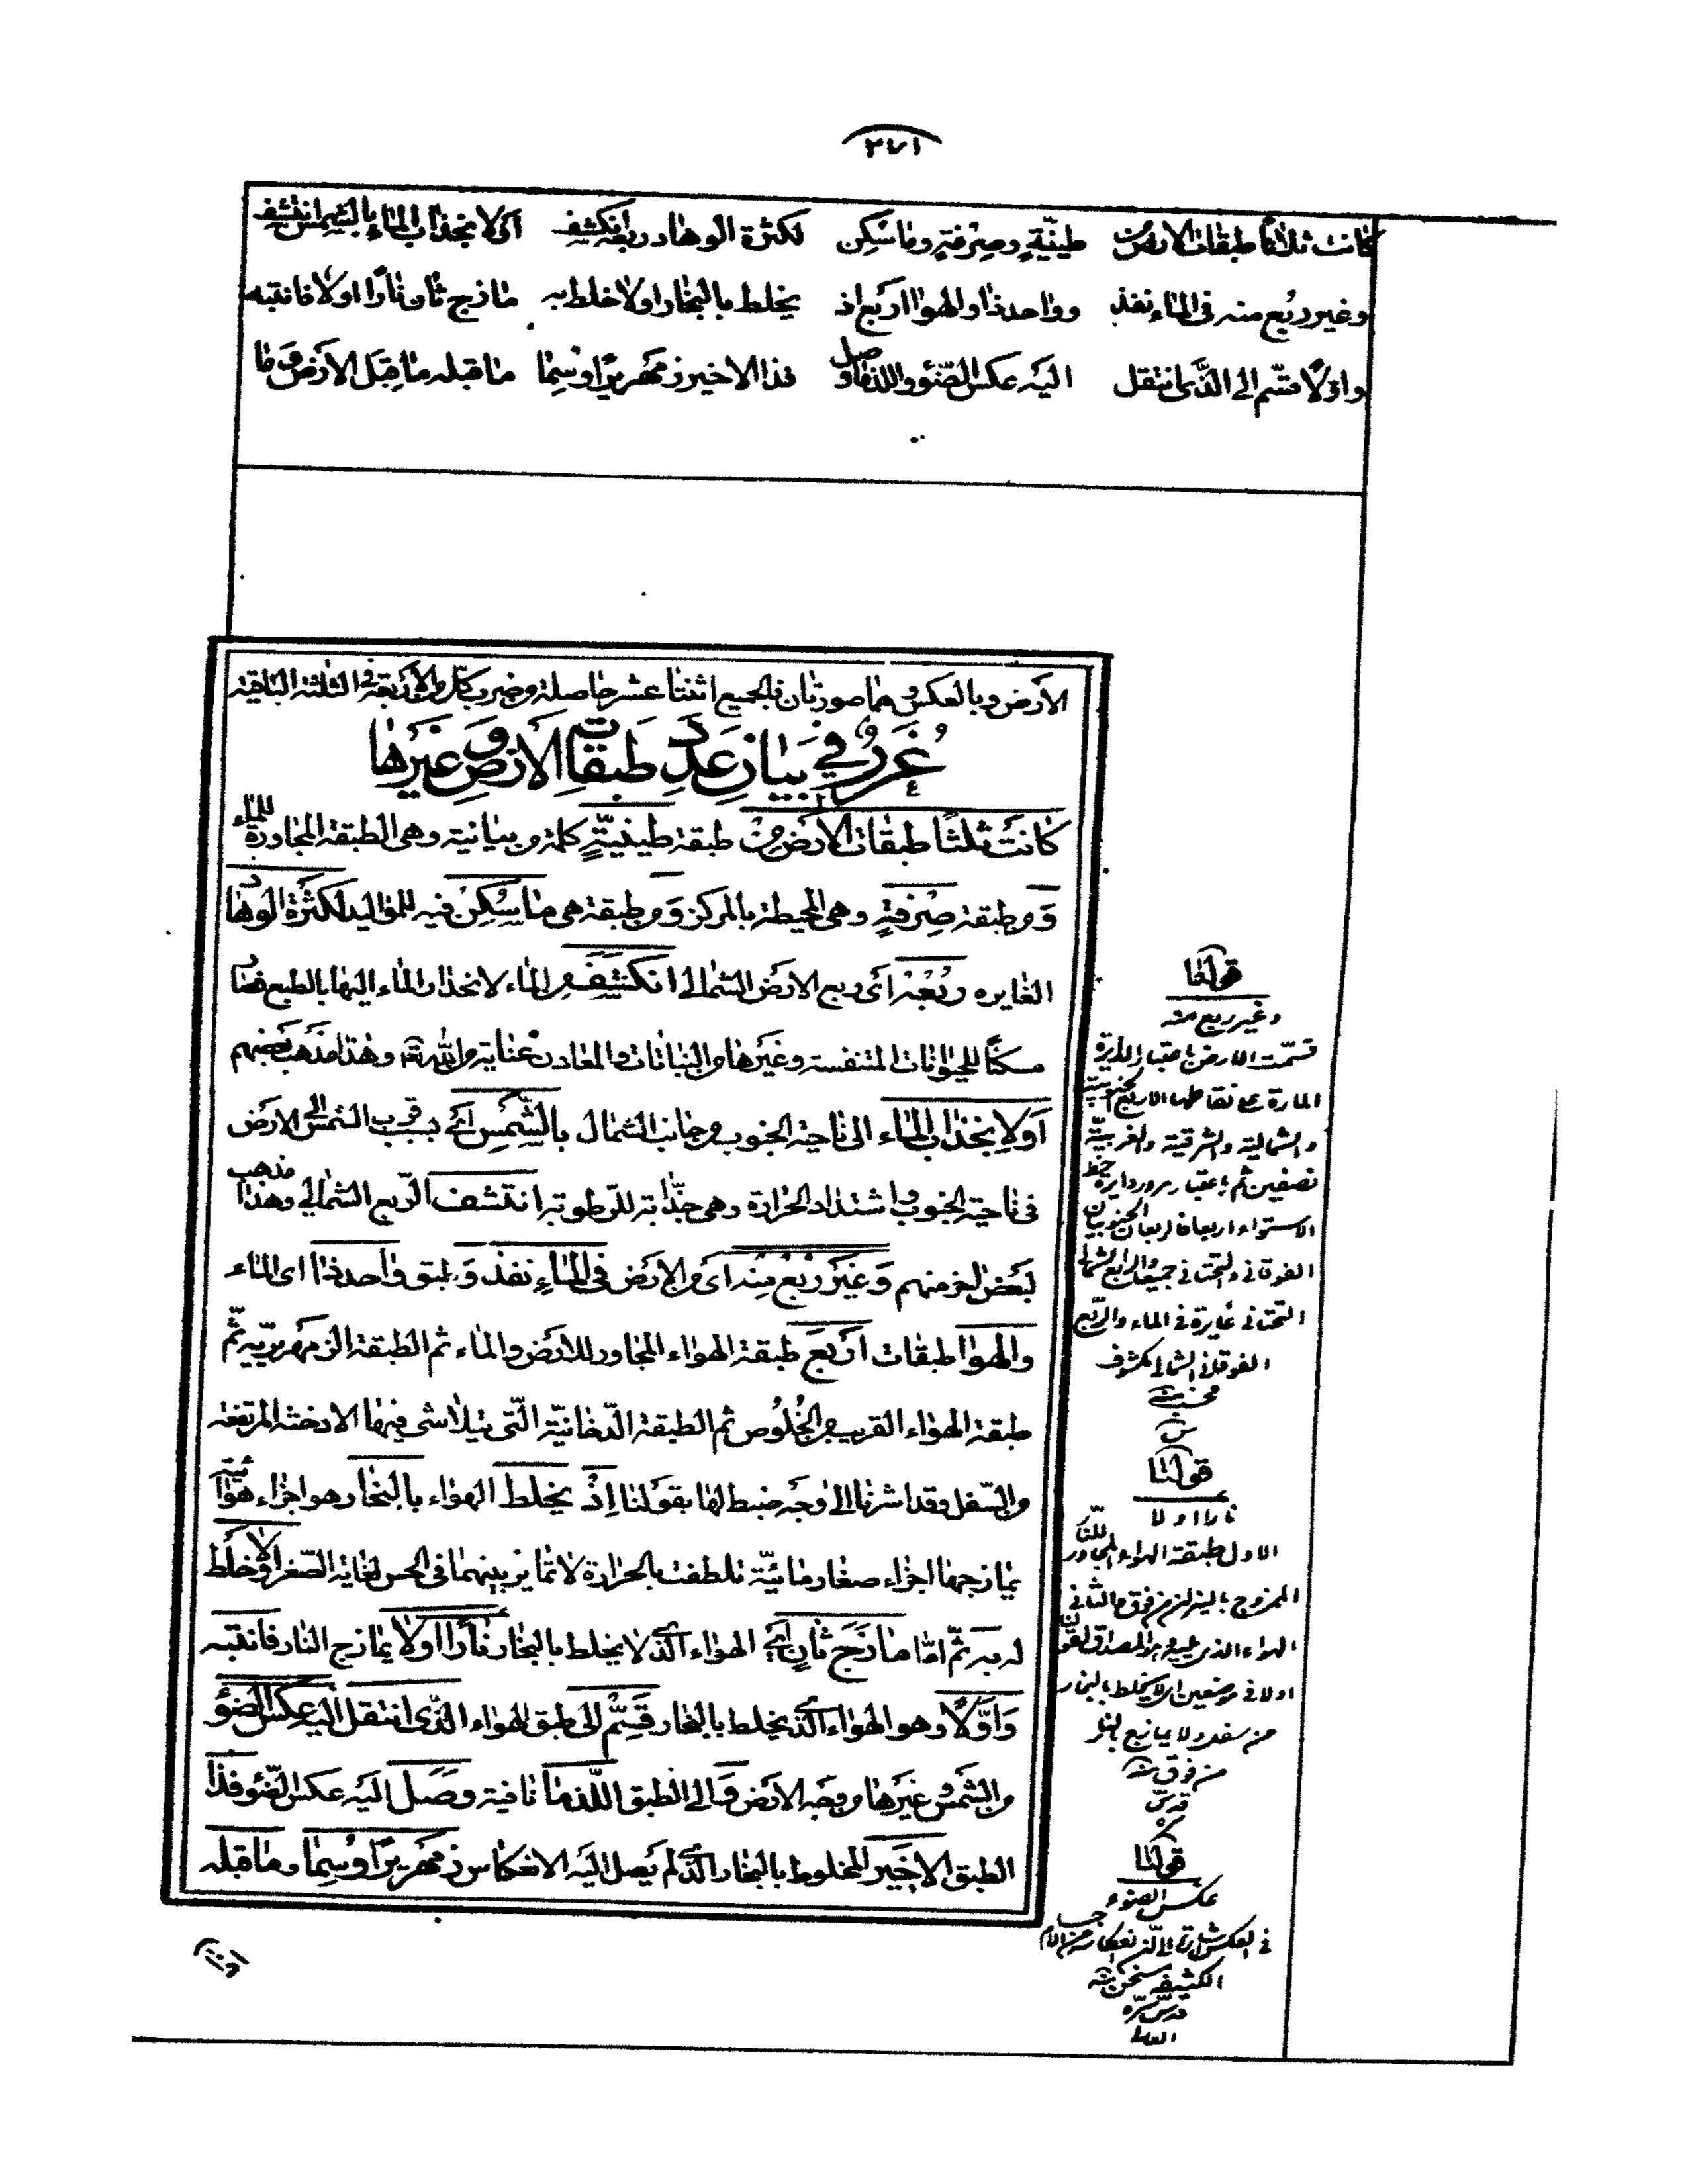 ٢٧١
كانت ثلاثا طبقات الارض من طينيّةٍ وصِرفةٍ وما سُكِن لكثرة الوهاد ربعه انكشف اى لانجذاب الماء بالشمس انتشف
وغير ربع منه فى الماء نفذ وواحد ذا والهوا اربع اذ يخلط بالبخار اولا خلط به مازج ثان نارا اولا فانتبه
واوّلا قسّم الى الذى انتقل اليه عكس الضّوء واللذ ما وصل فذا الاخير زمهريرا وسما ما قبله ما قبل الارض وما
الأرض وبالعكس وهما صورتان فالجميع اثنتا عشر حاصلة من ضرب كلّ من الاربعة فى الثلثة الباقية
غُرَرٌ في بَيانِ عَدَدِ طَبَقاتِ الأرْضِ وَغَيرِها
كانَتْ ثلثًا طبقات الارض مِنْ طبقة طينيّةٍ كلمة من بيانية وهى الطبقة المجاورة للماء
وَمن طبقة صِرْفةٍ وهى المحيطة بالمركز وَمن طبقة هى ما سُكِنْ فيه للمواليد لكثرة الوهاد
الغايره رُبْعُهُ اى ربع الارض الشمالى انكشف من الماء لانجذاب الماء اليها بالطبع فصار
مسكنًا للحيوانات المتنفسة وغيرها من النباتات والمعادن عناية من الله تع وهذا مذهب بعضهم
اَولاِنجذاب الماء الى ناحية الجنوب من جانب الشمال بالشّمس اى بسبب قرب الشمس الى الارض
فى ناحية الجنوب واشتداد الحرارة وهى جذّابة للرّطوبة انتشف الرّبع الشمالى وهذا مذهب
بعض اخر منهم وَغيرُ ربع مِنه اى من الارض فى الماءِ نفذ وَطبق واحد ذا اى الماء
والهوا طبقات اَربَع طبقة الهواء المجاور للارض والماء ثم الطبقة الزمهريريّه ثمّ
طبقة الهواء القريب من الخُلُوص ثم الطبقة الدّخانيّة الّتى يتلاشى فيها الادخنة المرتفعة
من السّفل وقد اشرنا الى وجه ضبط لها بقولنا اِذْ يخلط الهواء بالبخار وهو اجزاء هوائية
يمازجها اجزاء صغار مائيّة تلطفت بالحرارة لا تمايز بينهما فى الحس لغاية الصّغر اَوْلا خلط
له به ثمّ امّا مازَجَ ثانٍ اى الهواء الّذى لا يخلط بالبخار نارًا اولا يمازج النار فانتبه
وَاوّلًا وهو الهواء الّذى يخلط بالبخار قَسِّمْ الى طبق الهواء الّذى انتقل اليه عكس الضوء
من الشمس وغيرها من وجه الارض وَالى الطبق اللّذ ما نافية وصَلْ اليه عكس الضّوء فذا
الطبق الاخير المخلوط بالبخار الّذى لم يصل اليه الانعكاس زمهريرًا وُسِما وما قبله
قولنا
وغير ربع منه
قسّمت الارض باعتبار الدايرة
المارة على نقاطها الاربع الجنوبيّة
والشمالية والشرقية والغربيّة
نصفين ثم باعتبار مرور دايرة خط
الاستواء اربعا فاربعان الجنوبيان
الفوقانى والتحتانى جميعا والرابع الشمالى
التحتانى غايرة فى الماء والرّبع
الفوقانى الشمالى مكشوف
قولنا
نارا اولا
الاول طبقة الهواء المجاور للنّار
الهواء الذى
اولا فى موضعين اى لا يختلط بالبخار
من سفله ولا يمازج بالنار
من فوق منه
قدّس سرّه
قولنا
عكس الضوء
الكثيفه
قدّس سرّه